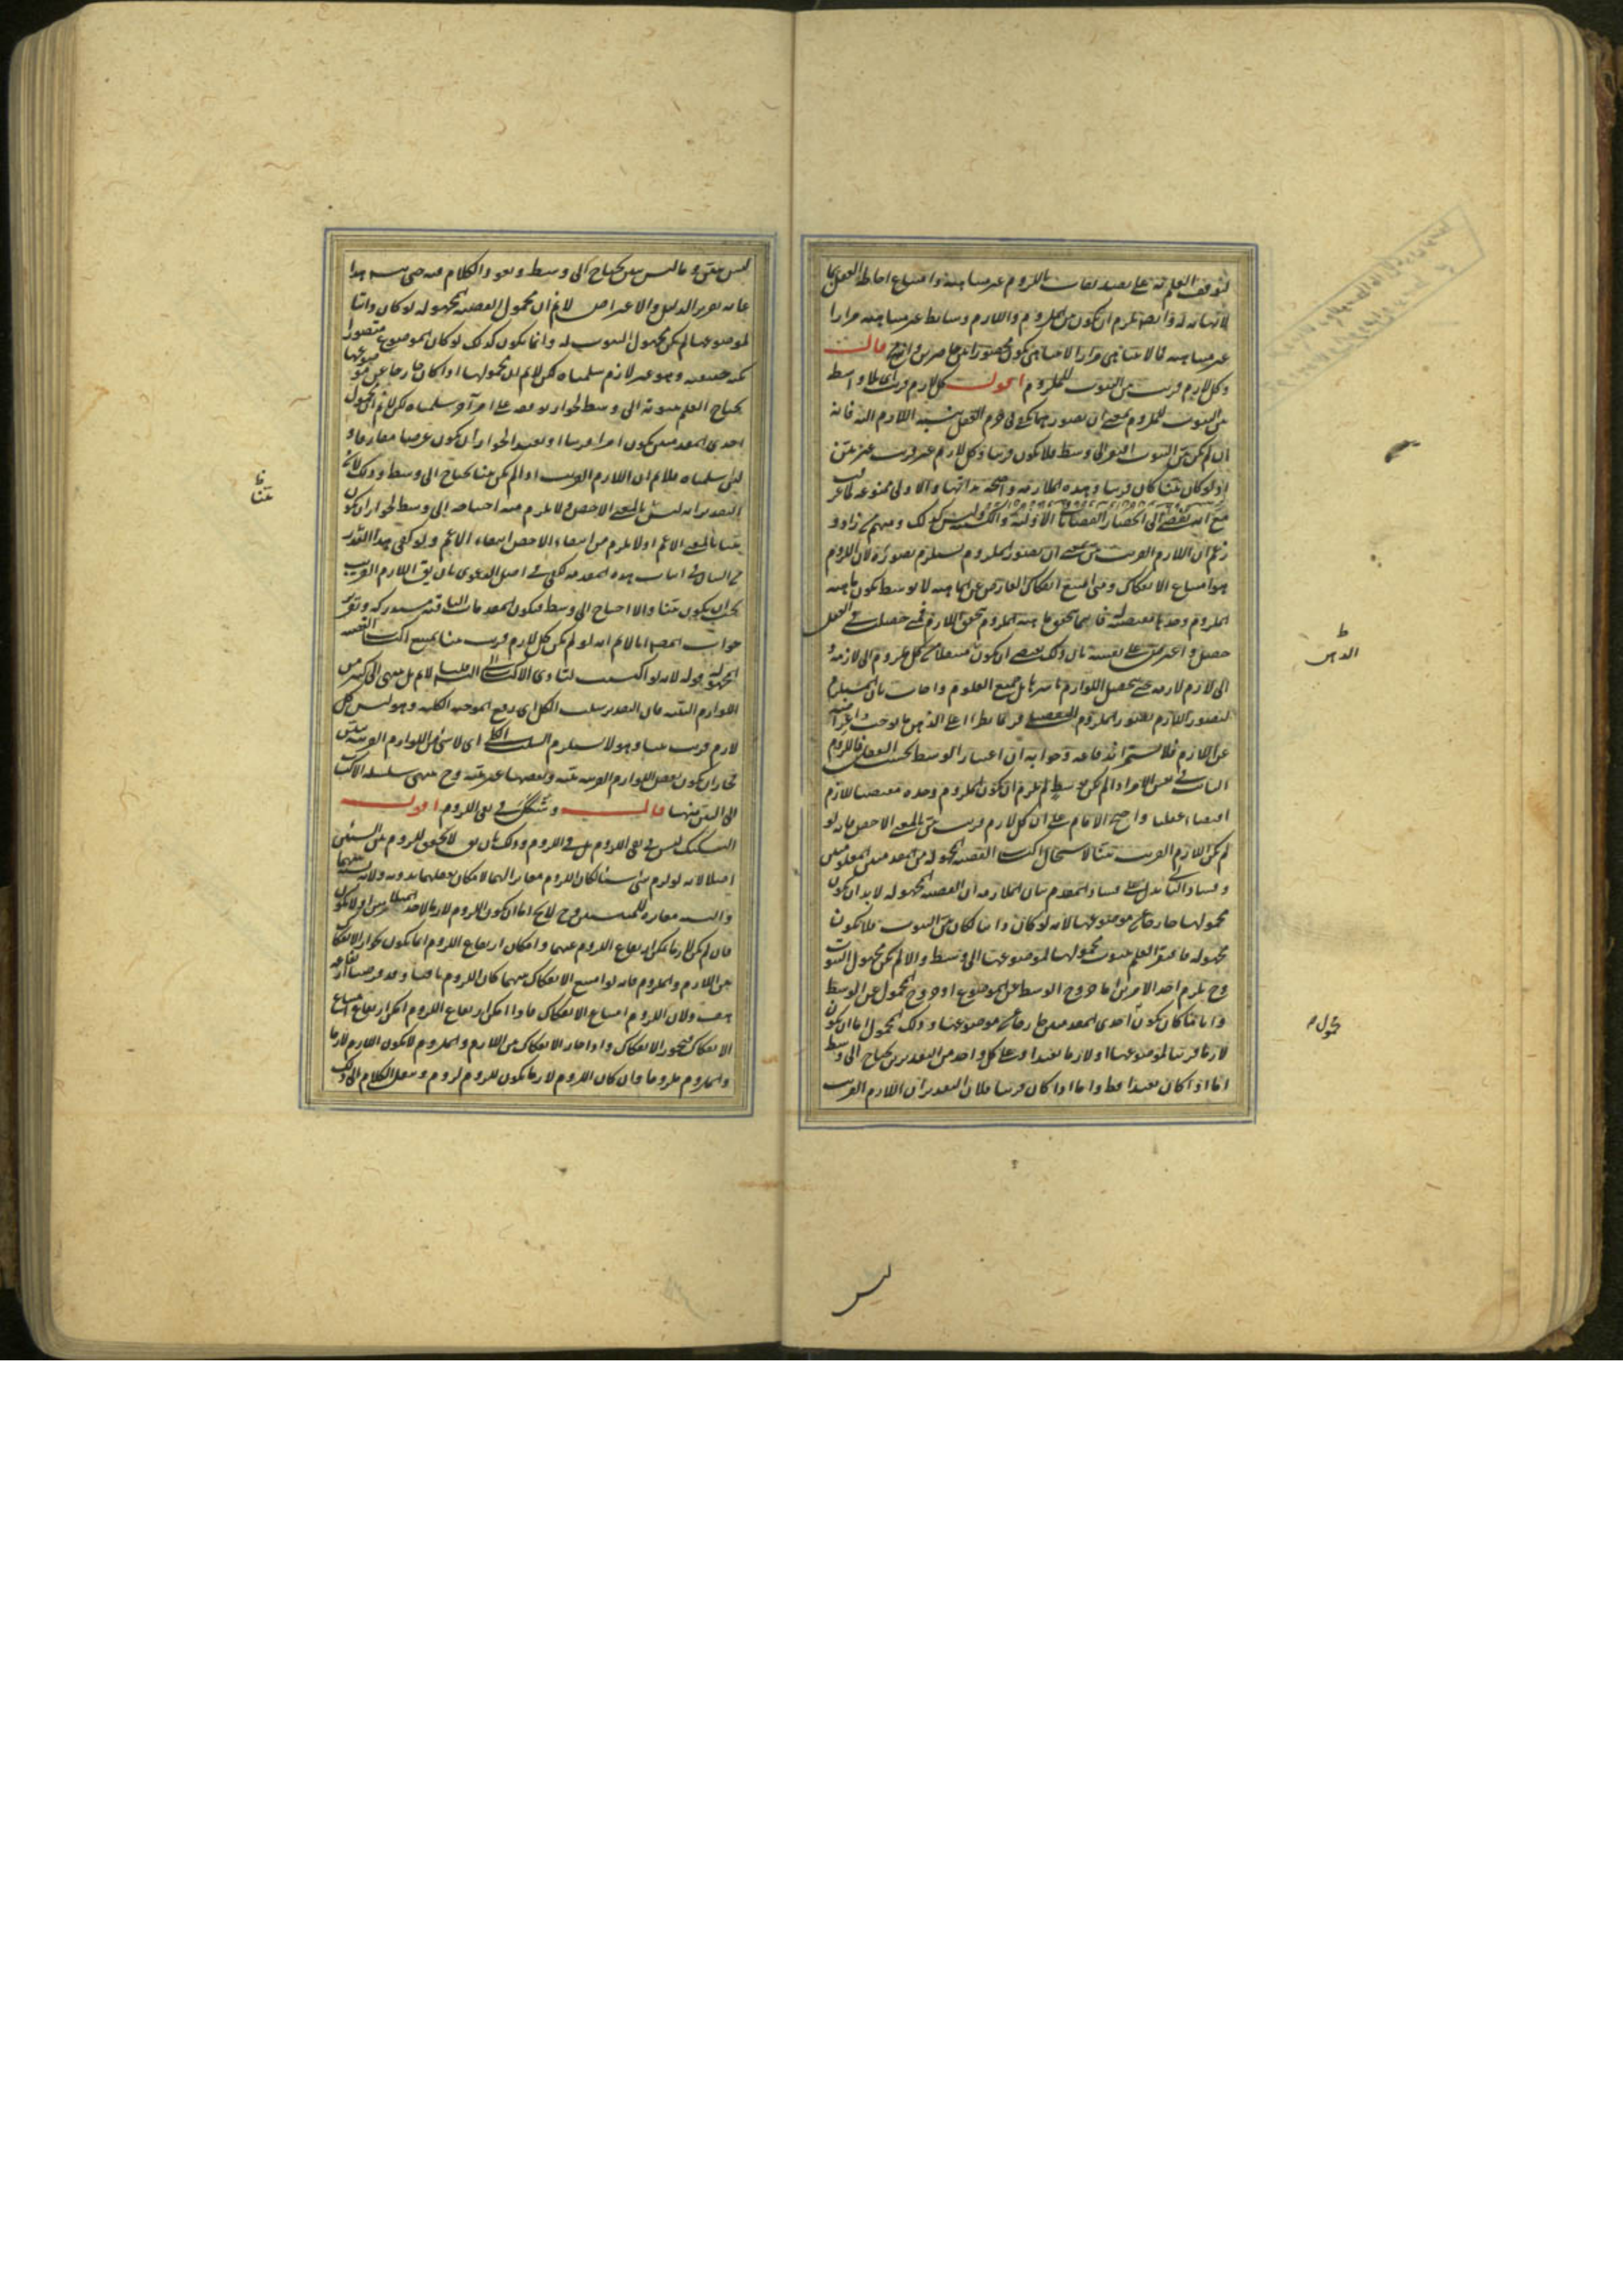 لتوقف العلم به على تصديقات باللزوم غير متناهية وامتناع احاطة العقل بما
لا نهاية له وايضا يلزم ان يكون بين الملزوم واللازم وسائط غير متناهية مرارا
غير متناهية فالا يتناهى مرارا لا يتناهى يكون محصورا بين حاصرين وانه مح قال
وكل لازم قريب بين الثبوت للملزوم اقول كل لازم قريب اى بلا واسط
بين الثبوت للملزوم بمعنى ان تصورهما يكفى فى جزم العقل بنسبة اللازم اليه فانه
ان لم يكن بين الثبوت افتقر الى وسط فلا يكون قريبا وكل لازم غير قريب غير بين
اذ لو كان بينا كان قريبا وهذه الملازمة واضحة بذاتها والاولى ممنوعة
زعم ان اللازم القريب بين بمعنى ان تصور الملزوم يستلزم تصوره لان اللزوم
هو امتناع الانفكاك ومتى امتنع انفكاك العارض عن الماهية لا بوسط يكون ماهية
الملزوم وحدها مقتضية له فاينما تحقق ماهية الملزوم تحقق اللازم فمتى حصلت فى العقل
حصل واعترض على نفسه بان ذلك يقتضى ان يكون منتقلا من كل ملزوم الى لازمه و
الى لازم لازمه حتى يحصل اللوازم باسرها بل جميع العلوم واجاب بان المستلزم
لتصور اللازم تصور الملزوم التفصيلى فربما يطرأ على الذهن ما يوجب اعراضه
عن اللازم فلا يستمر اندفاعه وجوابه ان اعتبار الوسط بحسب العقل فاللزوم
الثابت فى نفس الامر اذا لم يكن بوسط لم يلزم ان يكون الملزوم وحده مقتضيا للازم
اقتضاء عقليا واحتج الامام على ان كل لازم قريب بين بالمعنى الاخص بانه لو
لم يكن اللازم القريب بينا لاستحال اكتساب القضية المجهولة من المقدمتين المعلومتين
وفساد التالى يدل على فساد المقدم بيان الملازمة ان القضية المجهولة لا بد ان يكون
محمولها خارجا عن موضوعها لانه لو كان ذاتيا لكان بين الثبوت فلا يكون
مجهولة فافتقر العلم بثبوت محمولها لموضوعها الى وسط والا لم يكن مجهول الثبوت
وح يلزم احد الامرين اما خروج الوسط عن الموضوع او خروج المحمول عن الوسط
وايا ما كان يكون احدى المقدمتين خارجا عن موضوعها وذلك المحمول اما ان يكون
لازما قريبا لموضوعها او لازما بعيدا وعلى كل واحد من التقديرين يحتاج الى وسط
اما اذا كان بعيدا فظ واما اذا كان قريبا فلان التقدير ان اللازم القريب
الذهن
محمول م
ليس
ليس ببين وما ليس ببين يحتاج الى وسط ويعود الكلام فيه حتى يتسلسل هذا
غاية تقرير الدليل والاعتراض لانم ان محمول القضية المجهولة لو كان ذاتيا
لموضوعها لم يكن مجهول الثبوت له وانما يكون كذلك لو كان الموضوع متصورا
بكنه حقيقته وهو غير لازم سلمناه لكن لانم ان محمولها اذا كان خارجا عن موضوعها
يحتاج العلم بثبوته الى وسط لجواز توقفه على امر آخر سلمناه لكن لانم ان محمول
احدى المقدمتين يكون اما قريبا او بعيدا لجواز ان يكون عرضيا مفارقا و
لئن سلمناه فلانم ان اللازم القريب اذا لم يكن بينا يحتاج الى وسط وذلك لان
التقدير انه ليس بالمعنى الاخص ولا يلزم منه احتياجه الى وسط لجواز ان يكون
بينا بالمعنى الاعم اذ لا يلزم من انتفاء الاخص انتفاء الاعم ولو كفى هذا القدر
من البيان فى اثبات هذه المقدمة لكفى فى اصل الدعوى بان يق اللازم القريب
يجب ان يكون بينا والا احتاج الى وسط فيكون المقدمات الباقية مستدركة وتقرير
جواب المص انا لانم انه لو لم يكن كل لازم قريب بينا يمتنع اكتساب القضية
المجهولة قوله لانه لو اكتسب لتأدى الاكتساب الى التسلسل لانم بل ينتهى الى كثير من
اللوازم البينة فان التقدير سلب الكل اى رفع الموجبة الكلية وهو ليس كل
لازم قريب بينا وهو لا يستلزم السلب الكلى اى لا شئ من اللوازم القريبة ببين
فجاز ان يكون بعض اللوازم القريبة بينة وبعضها غير بينة وح ينتهى سلسلة الاكتساب
الى البين منها قال وشكك فى نفى اللزوم اقول
التشكيك ليس فى نفى اللزوم بل فى اللزوم وذلك بان يق لا تحقق للزوم بين الشيئين
اصلا لانه لو لزم شئ شيئا لكان اللزوم مغايرا لهما لامكان تعقلهما بدونه ولانه نسبة بينهما
والنسبة مغايرة للمنتسبين وح لا يخ اما ان يكون اللزوم لازما لاحد المتلازمين او لا يكون
فان لم يكن لازما امكن ارتفاع اللزوم عنهما وامكان ارتفاع اللزوم انما يكون بجواز الانفكاك
بين اللازم والملزوم فانه لو امتنع الانفكاك بينهما كان اللزوم باقيا وقد فرضنا ارتفاعه
هف ولان اللزوم امتناع الانفكاك فاذا امكن ارتفاع اللزوم امكن ارتفاع امتناع
الانفكاك فيجوز الانفكاك واذا جاز الانفكاك بين اللازم والملزوم لا يكون اللازم لازما
والملزوم ملزوما وان كان اللزوم لازما يكون للزوم لزوم وينتقل الكلام الى ذلك
بينا